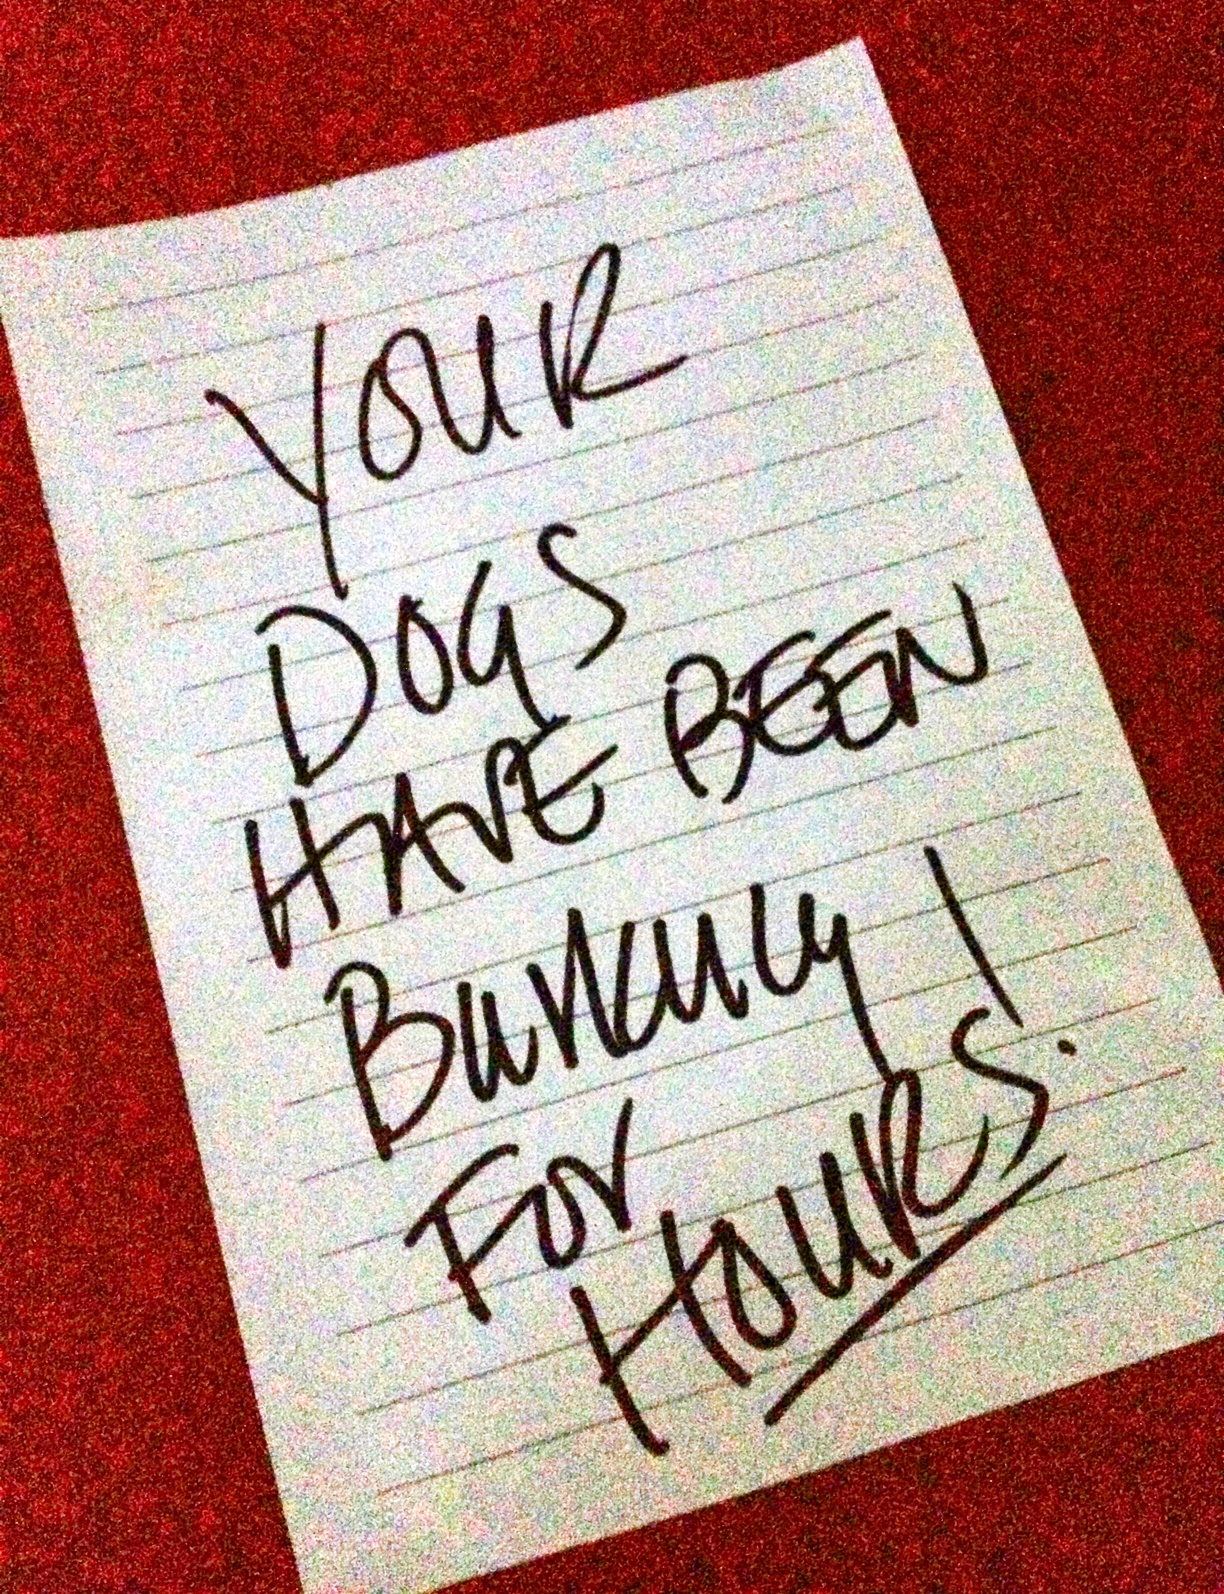 YOUR
DOGS
HAVE BEEN
Barking
For
HOURS!